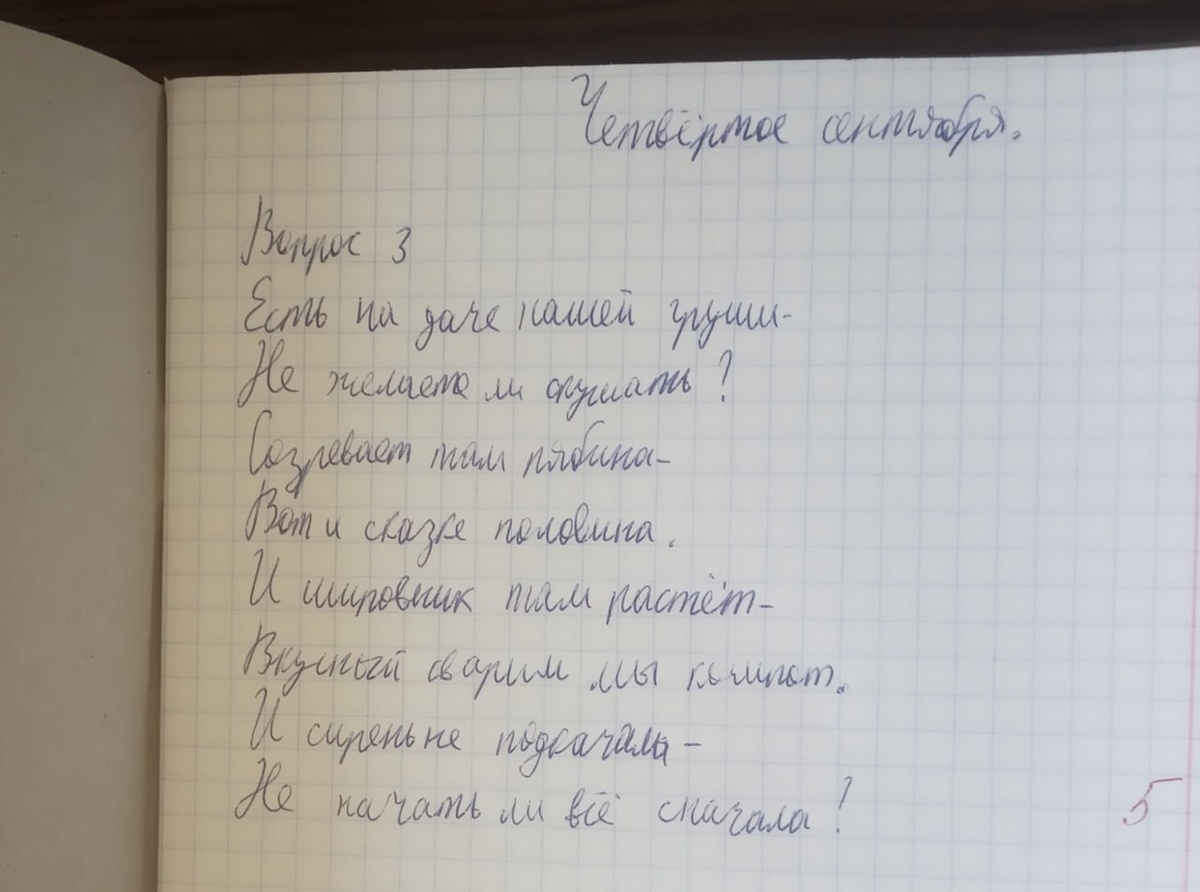 Четвёртое сентября.
Вопрос 3
Есть на даче нашей груши-
Не желаете ли скушать?
Созревает там рябина-
Вот и сказке половина.
И шиповник там растёт-
Вкусный сварим мы компот.
И сирень не подкачала-
Не начать ли всё сначала!
5